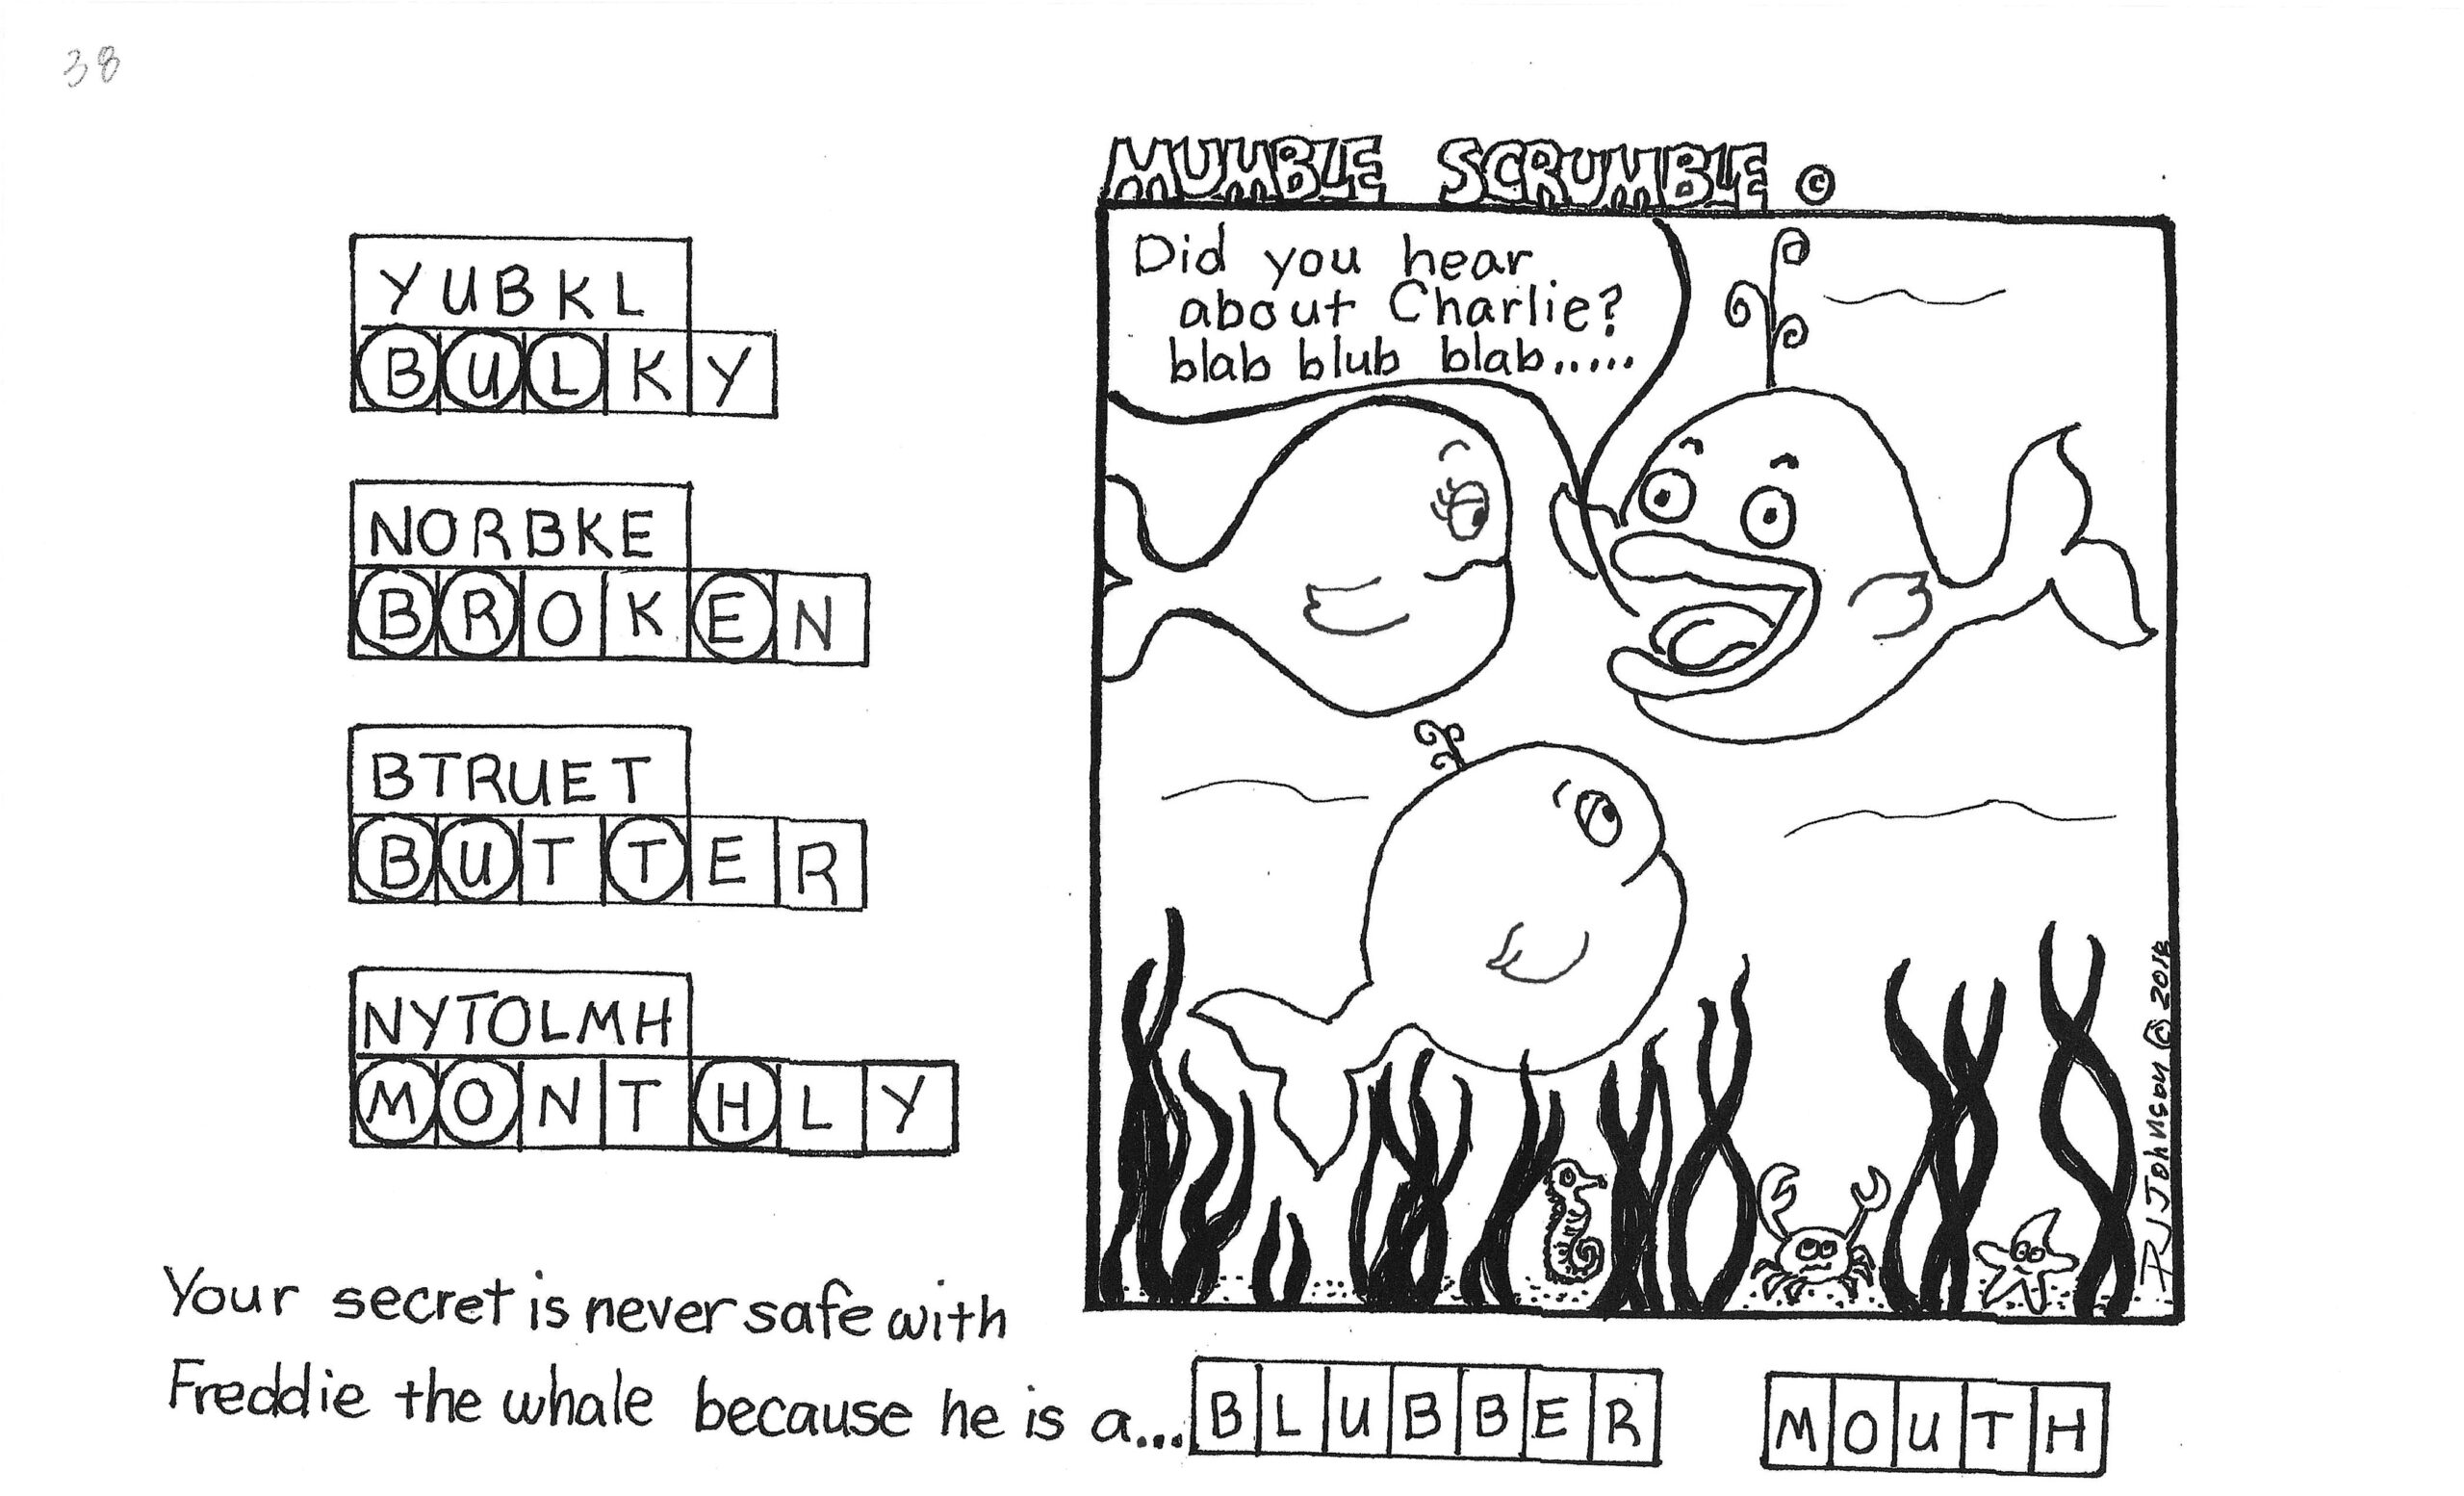 38
MUMBLE SCRUMBLE ©
YUBKL
BULKY
NORBKE
BROKEN
BTRUET
BUTTER
NYTOLMH
MONTHLY
Did you hear
about Charlie?
blab blub blab.....
PJJohnson © 2018
Your secret is never safe with
Freddie the whale because he is a... BLUBBER MOUTH